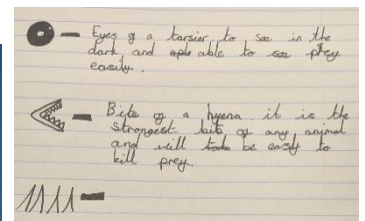 Eyes of a tarsier to see in the
dark and able to see prey
easily.
Bite of a hyena it is the
strongest bite of any animal
and will be easy to
kill prey.